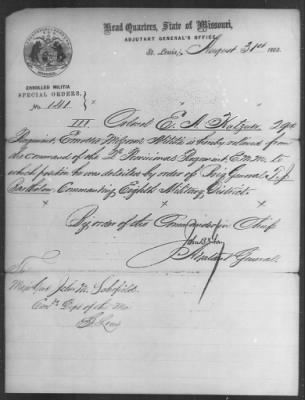 Head Quarters, State of Missouri,
ADJUTANT GENERAL'S OFFICE
St. Louis, August 31st 1863
ENROLLED MILITIA
SPECIAL ORDERS,
No. 141.
III Colonel E. A. Kutzner 39th
Regiment, Enrolled Missouri Militia is hereby relieved from
the command of the 2d Provisional Regiment, E.M.M. to
which position he was detailed by order of Brig General
Commanding Eighth Military District.
By order of the Commander in Chief
Adjutant General.
To
Maj Gen John M. Schofield
Com'g Dept of the Mo
St Louis